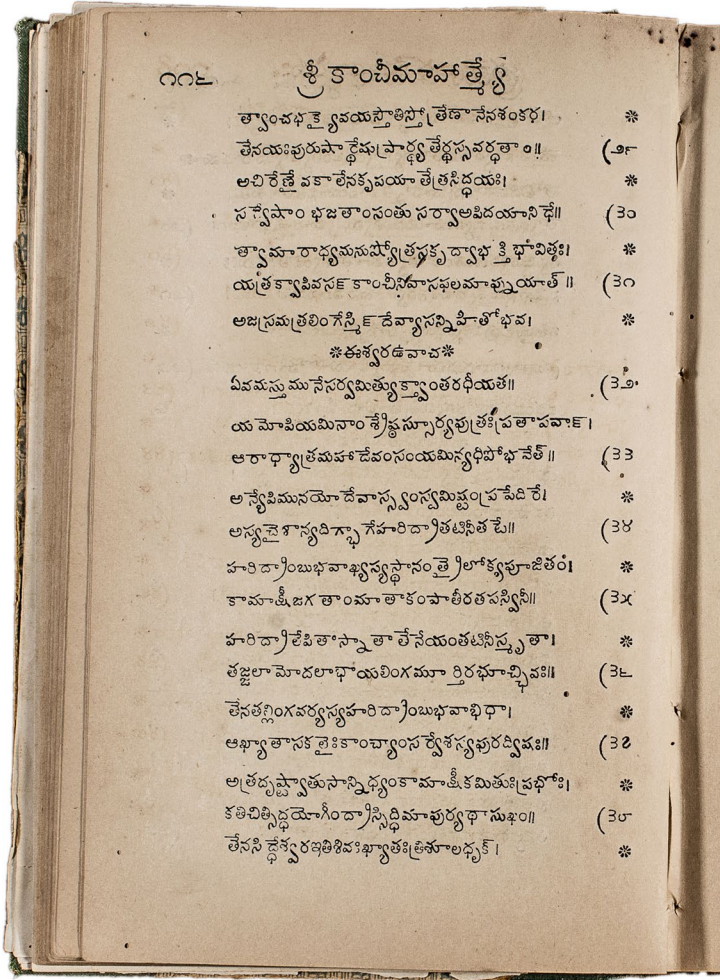 ౧౧౬ శ్రీ కాంచీమాహాత్మ్యే
త్వాంచభక్త్యైవయస్తౌతిస్తోత్రేణానేనశంకర। *
తేనయఃపురుషార్థేషుప్రార్థ్యతేర్థస్సవర్ధతాం॥ (౨౯
అచిరేణైవకాలేనకృపయాతేత్రసిద్ధయః। *
సర్వేషాం భజతాంసంతు సర్వాఅపిదయానిధే॥ (౩౦
త్వామారాధ్యమనుష్యోత్రసకృద్వాభక్తిభావితః। *
యత్రక్వాపివస౯ కాంచీనివాసఫలమాప్నుయాత్॥ (౩౧
అజస్రమత్రలింగేస్మి౯ దేవ్యాసన్నిహితోభవ। *
*ఈశ్వరఉవాచ*
ఏవమస్తుమునేసర్వమిత్యుక్త్వాంతరధీయత॥ (౩౨
యమోపియమినాం శ్రేష్ఠస్సూర్యపుత్రఃప్రతాపవా౯।
ఆరాధ్యాత్రమహాదేవంసంయమిన్యధిపోభవేత్॥ (౩౩
అన్యేపిమునయోదేవాస్స్వంస్వమిష్టంప్రపేదిరే। *
అస్యచైశాన్యదిగ్భాగేహరిద్రాతటినీతటే॥ (౩౪
హరిద్రాంబుభవాఖ్యస్యస్థానం త్రైలోక్యపూజితం। *
కామాక్షీజగతాంమాతాకంపాతీరతపస్వినీ॥ (౩౫
హరిద్రాలేపితాస్నాతాతేనేయంతటినీస్మృతా। *
తజ్జలామోదలాభాయలింగమూర్తిరభూచ్ఛివః॥ (౩౬
తేనతల్లింగవర్యస్యహరిద్రాంబుభవాభిధా। *
ఆఖ్యాతాసకలైఃకాంచ్యాంసర్వేశస్యపురద్విషః॥ (౩౭
అత్రదృష్ట్వాతుసాన్నిధ్యంకామాక్షీకమితుఃప్రభోః। *
కతిచిత్సిద్ధయోగీంద్రాస్సిద్ధిమాపుర్యథాసుఖం॥ (౩౮
తేనసిద్ధేశ్వరఇతిశివఃఖ్యాతఃత్రిశూలధృక్। *